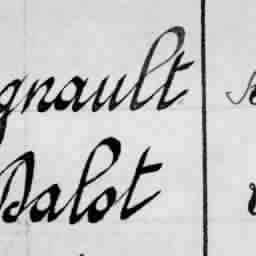 gnault
Dalot